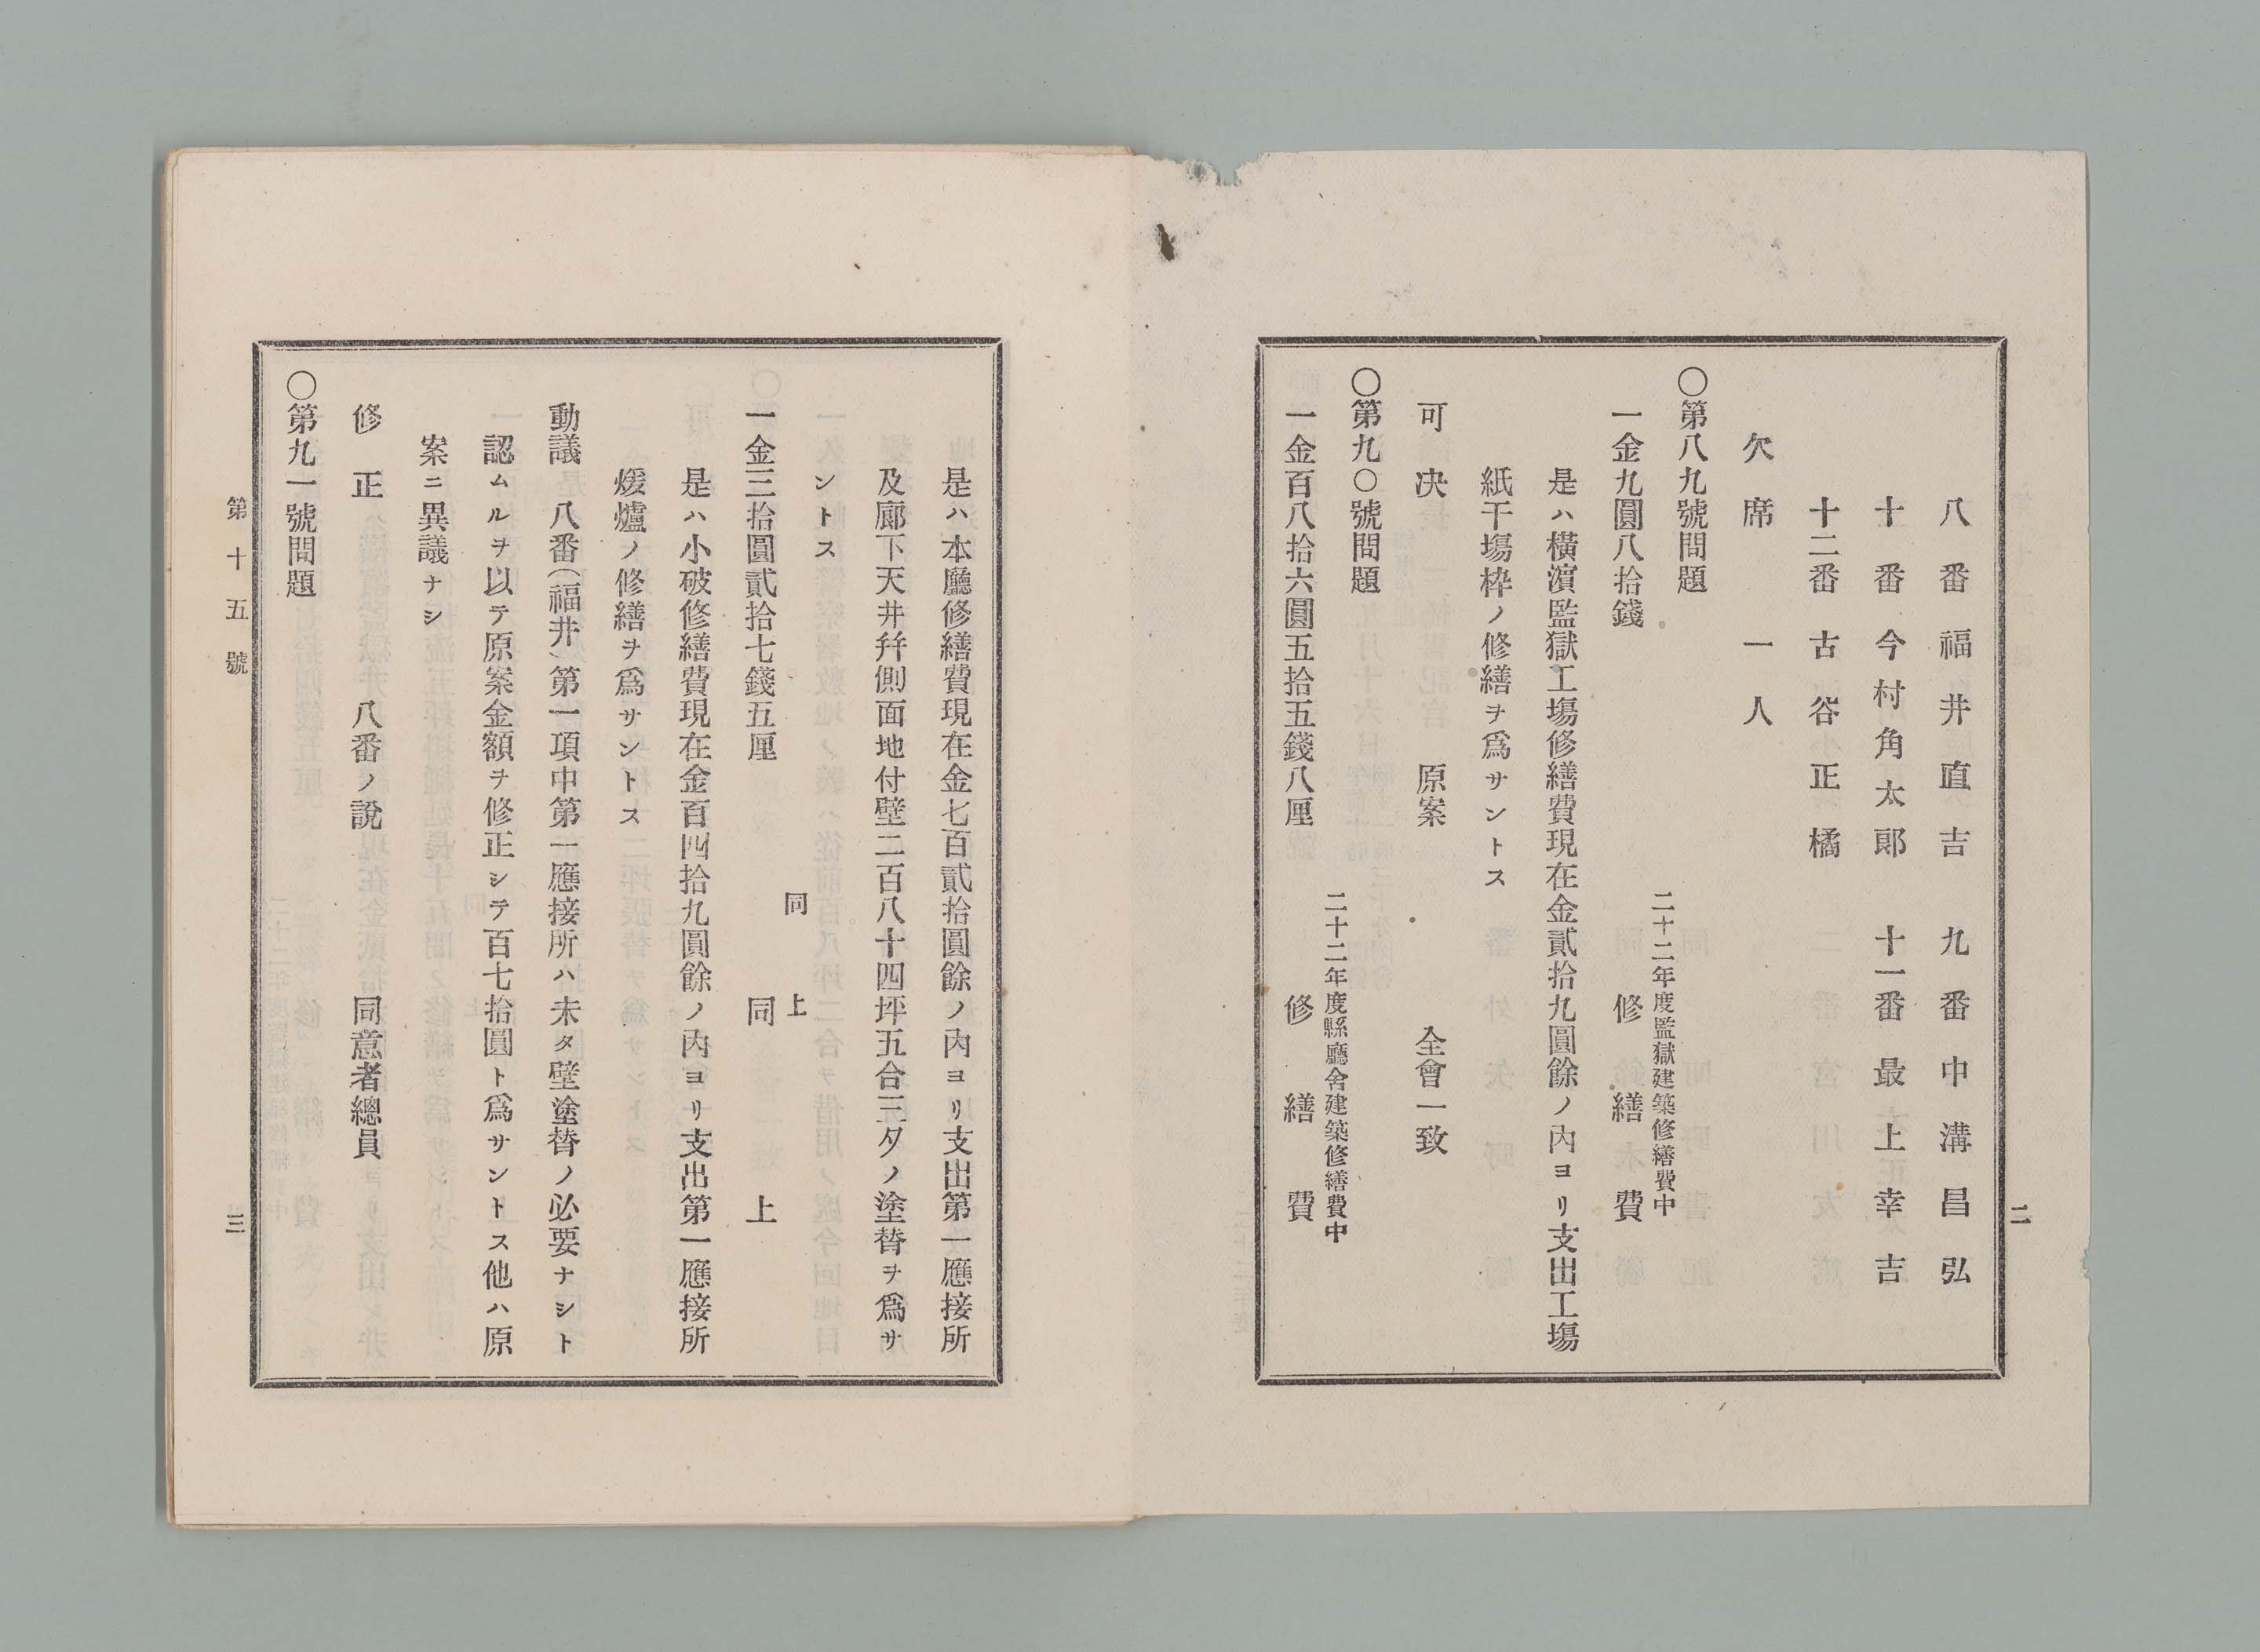 二
八番福井直吉　九番中溝昌弘
十番今村角太郎　十一番最上幸吉
十二番古谷正橘
欠席一人
〇第八九號問題
二十二年度監獄建築修繕費中
一金九圓八拾錢　修繕費
是ハ橫濵監獄工塲修繕費現在金貳拾九圓餘ノ內ヨリ支出工塲
紙干塲枠ノ修繕ヲ爲サントス
可決　原案　全會一致
〇第九〇號問題
二十二年度縣廳舍建築修繕費中
一金百八拾六圓五拾五錢八厘　修繕費
是ハ本廳修繕費現在金七百貳拾圓餘ノ內ヨリ支出第一應接所
及廊下天井幷側面地付壁二百八十四坪五合三夕ノ塗替ヲ爲サ
ントス
同上
一金三拾圓貳拾七錢五厘　同上
是ハ小破修繕費現在金百四拾九圓餘ノ內ヨリ支出第一應接所
煖爐ノ修繕ヲ爲サントス
動議　八番（福井）第一項中第一應接所ハ未タ壁塗替ノ必要ナシト
認ムルヲ以テ原案金額ヲ修正シテ百七拾圓ト爲サントス他ハ原
案ニ異議ナシ
修正　八番ノ說　同意者總員
〇第九一號問題
第十五號　三